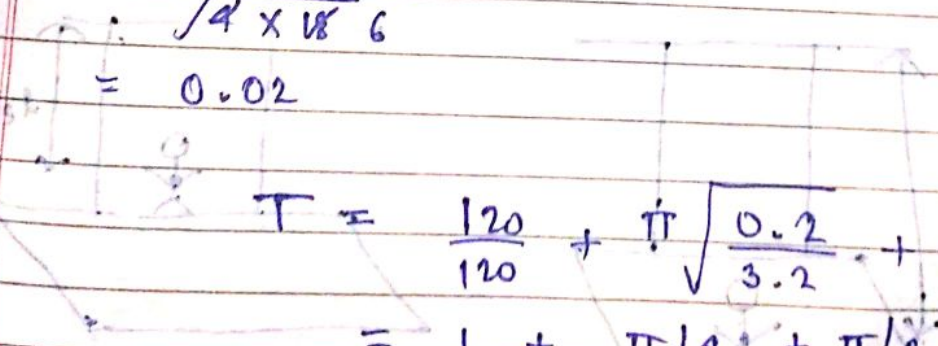 4 × 18 6
= 0.02
T = 120/120 + π√(0.2/3.2) +
= 1 + π/4 + π/